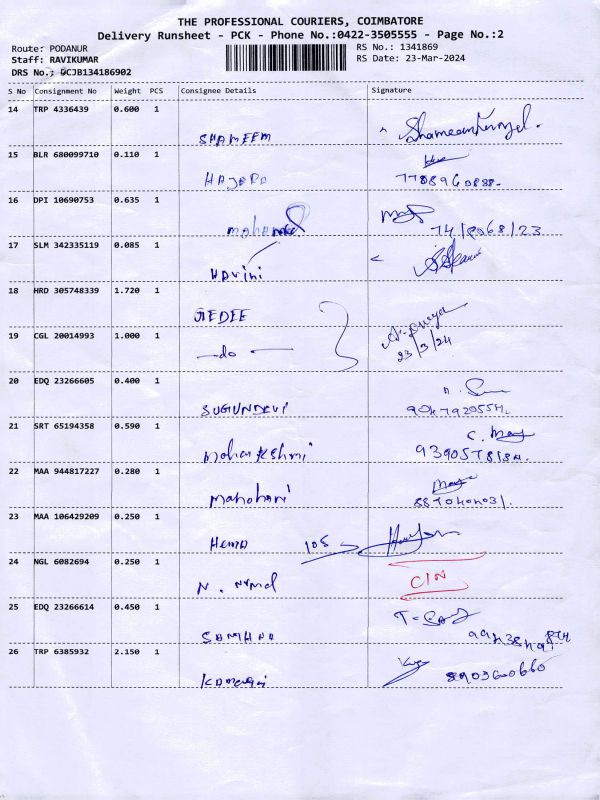 THE PROFESSIONAL COURIERS, COIMBATORE
Delivery Runsheet - PCK - Phone No.:0422-3505555 - Page No.:2
Route: PODANUR RS No.: 1341869
Staff: RAVIKUMAR RS Date: 23-Mar-2024
DRS No.: DCJB134186902
S No Consignment No Weight PCS Consignee Details Signature
14 TRP 4336439 0.600 1
SHAMEEM
15 BLR 680099710 0.110 1
HAJERA
16 DPI 10690753 0.635 1
17 SLM 342335119 0.085 1
HARINI
18 HRD 305748339 1.720 1
JEDEE
19 CGL 20014993 1.000 1
—do— 23/3/24
20 EDQ 23266605 0.400 1
SUGUNDEVI
21 SRT 65194358 0.590 1
22 MAA 944817227 0.280 1
Manohari
23 MAA 106429209 0.250 1
HEMA 108
24 NGL 6082694 0.250 1
N. C/N
25 EDQ 23266614 0.450 1
26 TRP 6385932 2.150 1
8903600660